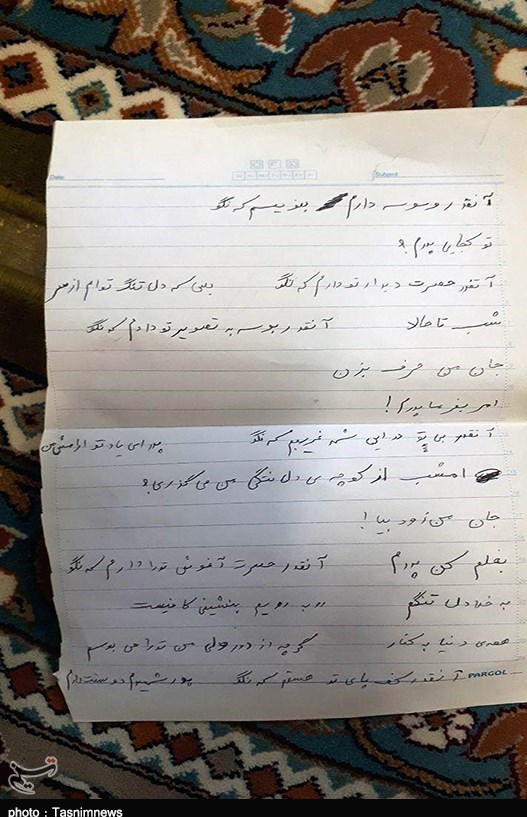 Date:
Subject:
آنقدر وسوسه دارم بنویسم که نگو
تو کجایی پدرم ؟
آنقدر حسرت دیدار تو دارم که نگو بس که دل تنگ توام از سر
شب تا حالا آنقدر بوسه به تصویر تو دادم که نگو
جان من حرف بزن
امر بفرما پدرم !
آنقدر بی تو در این شهر غریبم که نگو پدر ای یاد تو آرامش من
امشب از کوچه ی دل تنگی من می گذری ؟
جان من زود بیا !
بغلم کن پدرم آنقدر حسرت آغوش تو را دارم که نگو
به خدا دل تنگم رو به رویم بنشینی کافیست
همه ی دنیا به کنار گر چه از دور ولی من تو را می بوسم
آنقدر کف پای تو هستم که نگو پدر شهیدم دوستت دارم
PARGOL
تسنیم
photo : Tasnimnews